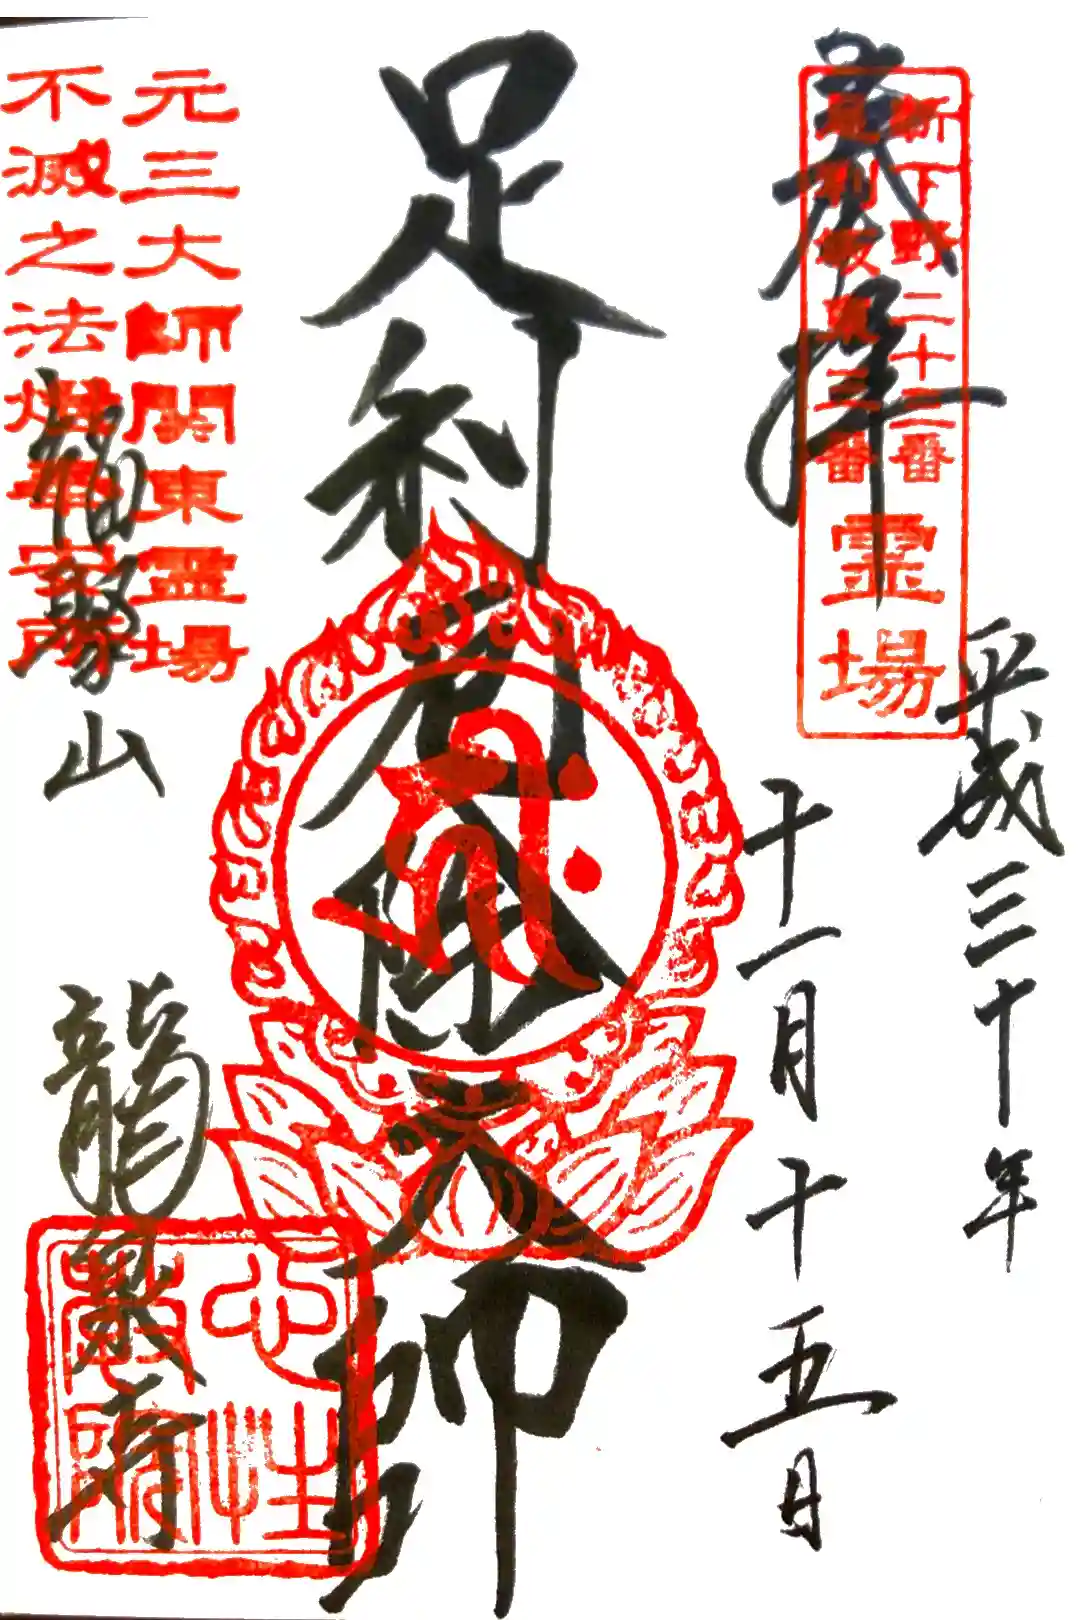 奉拝
新下野二十三番
足利坂東三番
霊場
平成三十年
十一月十五日
足利厄除大師
元三大師関東霊場
不滅之法燈奉安所
福聚山
龍泉寺